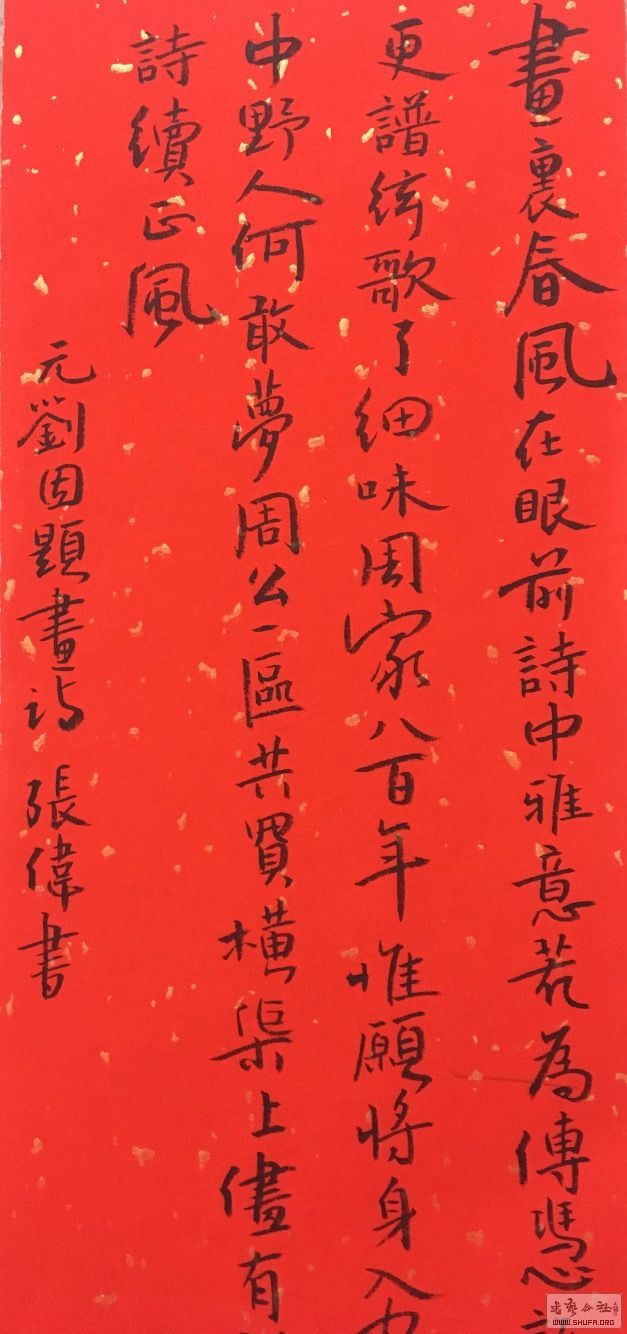 畫裏春風在眼前詩中雅意若為傳憑
更譜絃歌了細味周家八百年惟願將身入
中野人何敢夢周公一區共買橫渠上儘有
詩續正風
元劉因題畫詩 張偉書
書藝公社
WWW.SHUFA.ORG